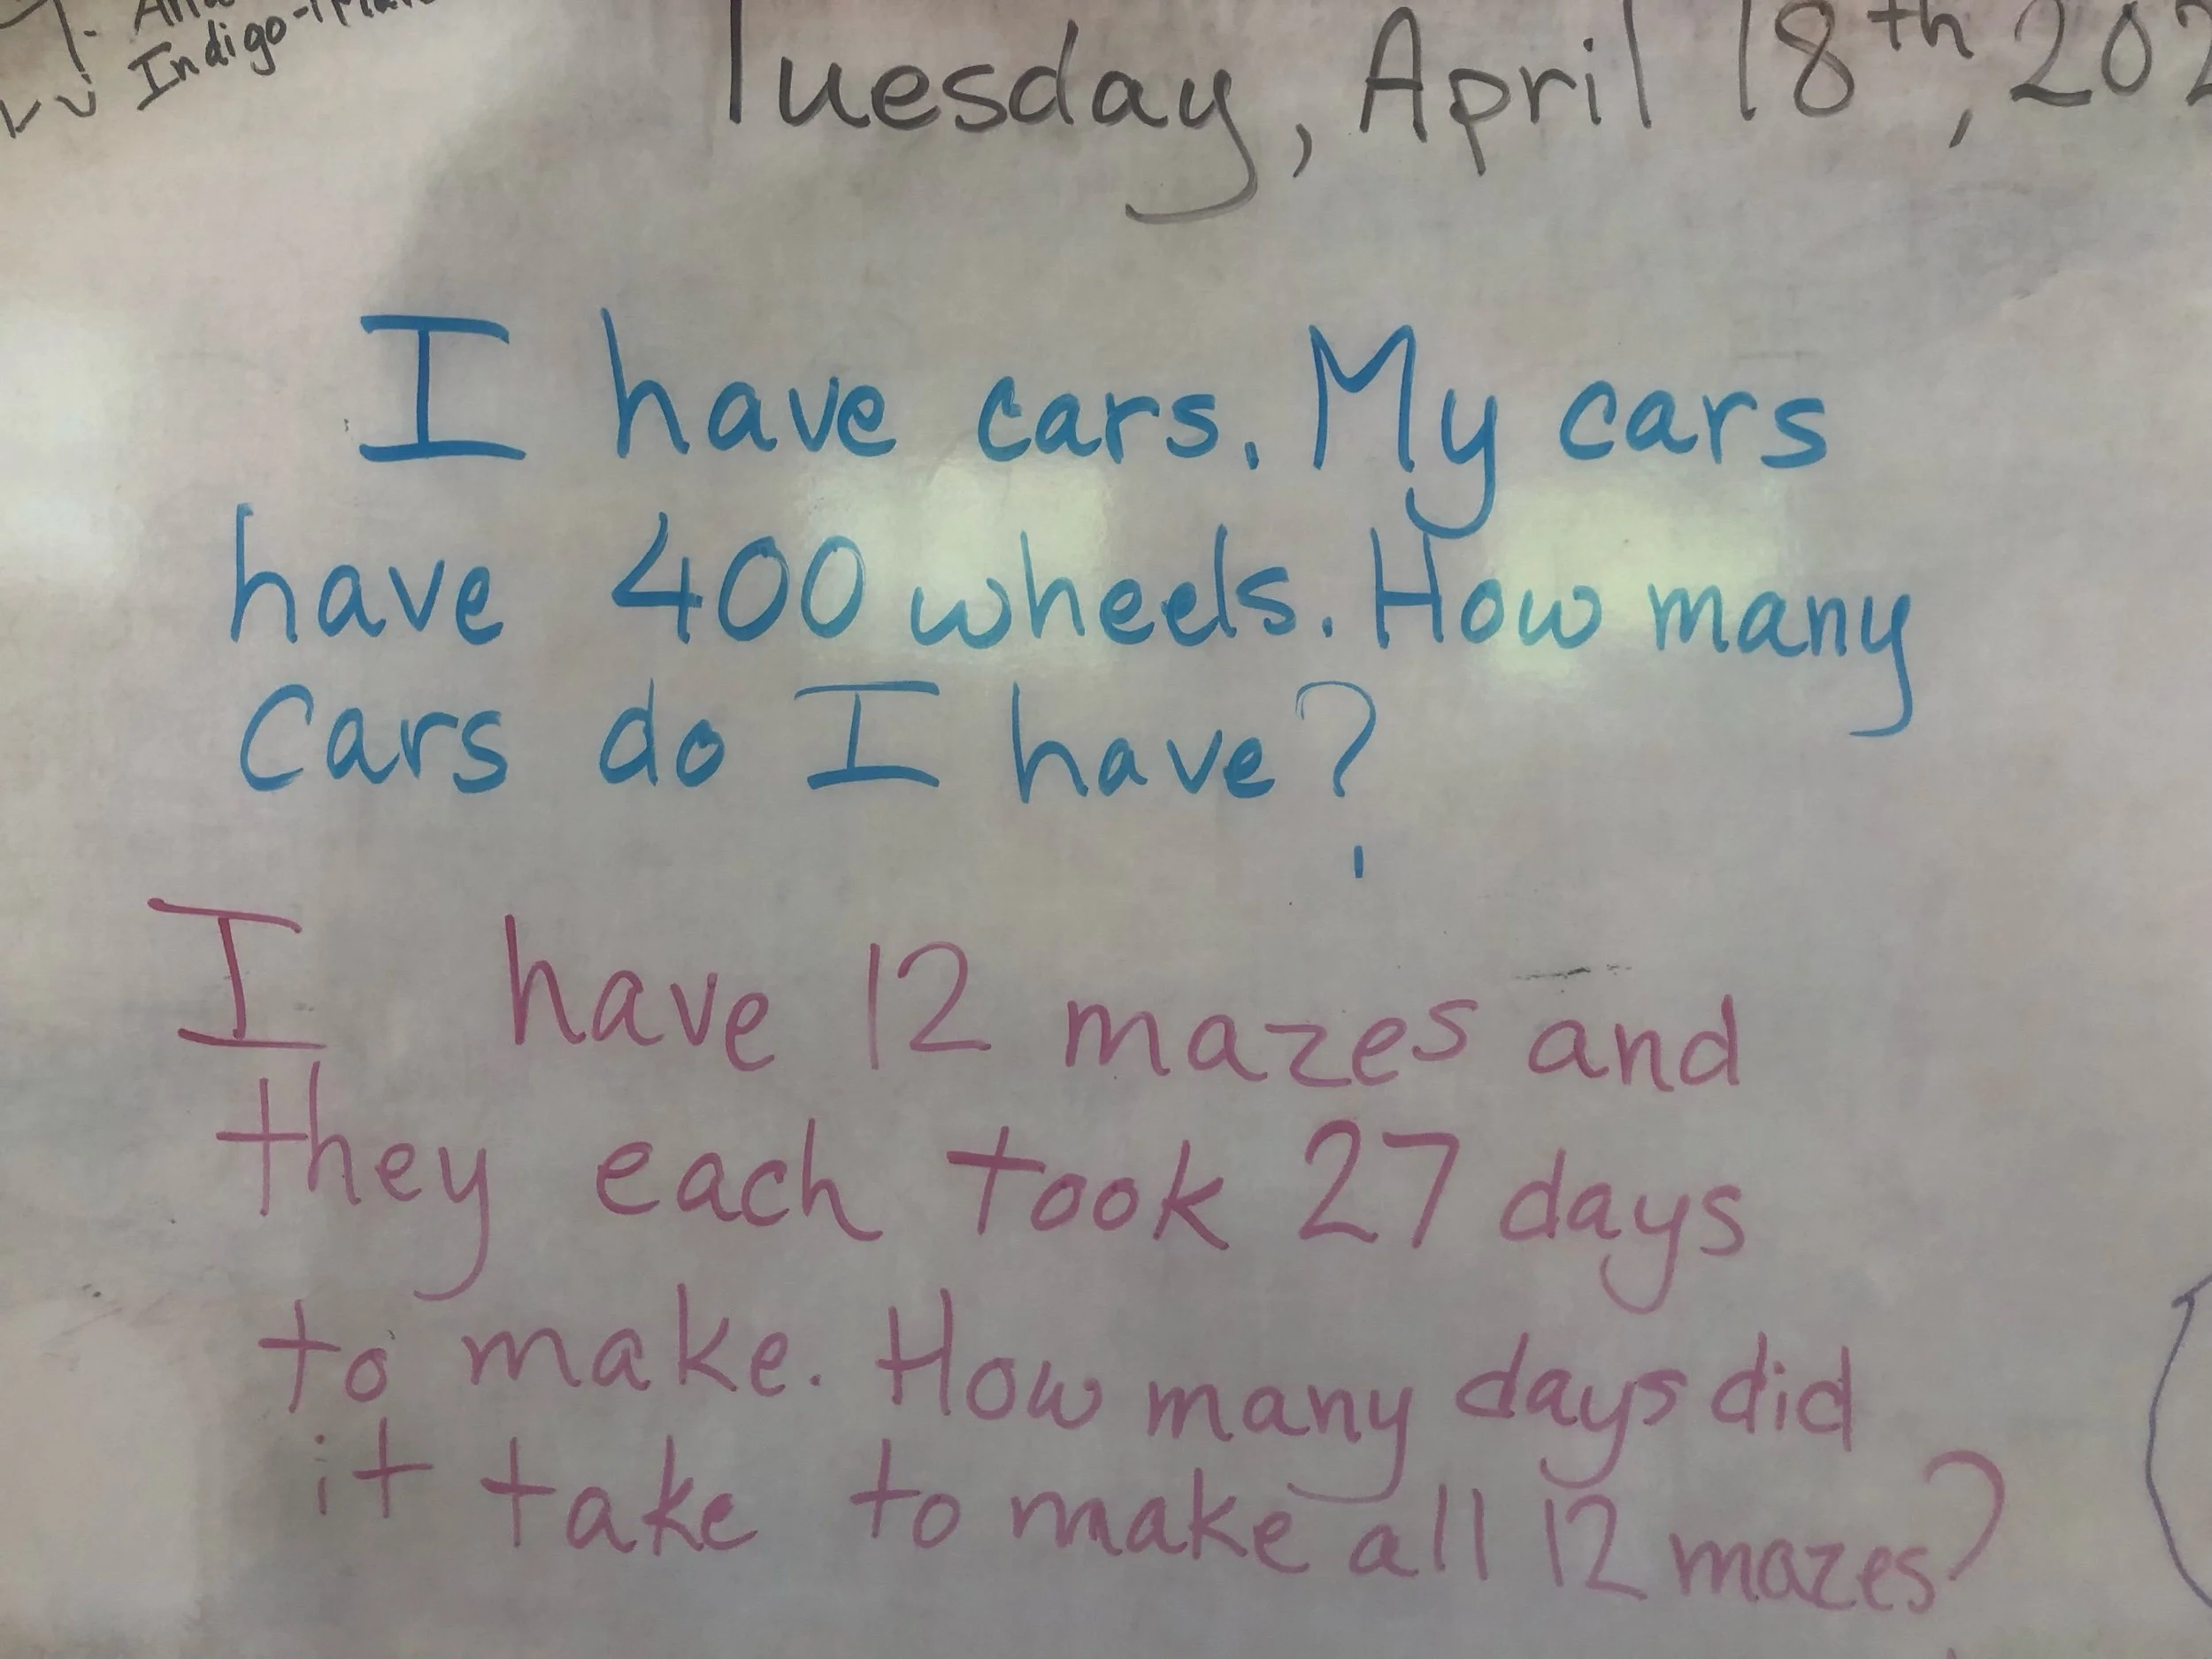 Indigo-
Tuesday, April 18th, 202
I have cars. My cars
have 400 wheels. How many
Cars do I have?
I have 12 mazes and
they each took 27 days
to make. How many days did
it take to make all 12 mazes?